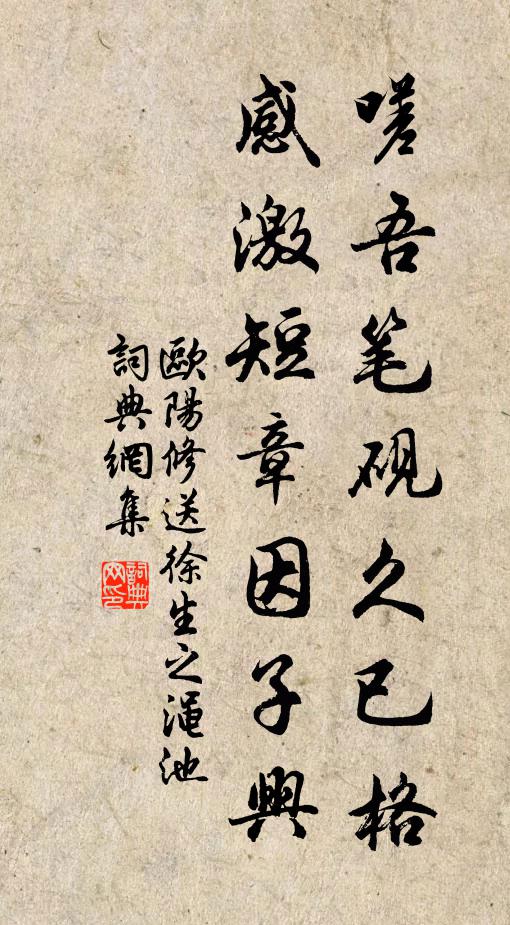 嗟吾笔砚久已格
感激短章因子興
歐陽修送徐生之澠池
詞典網集
詞典网印